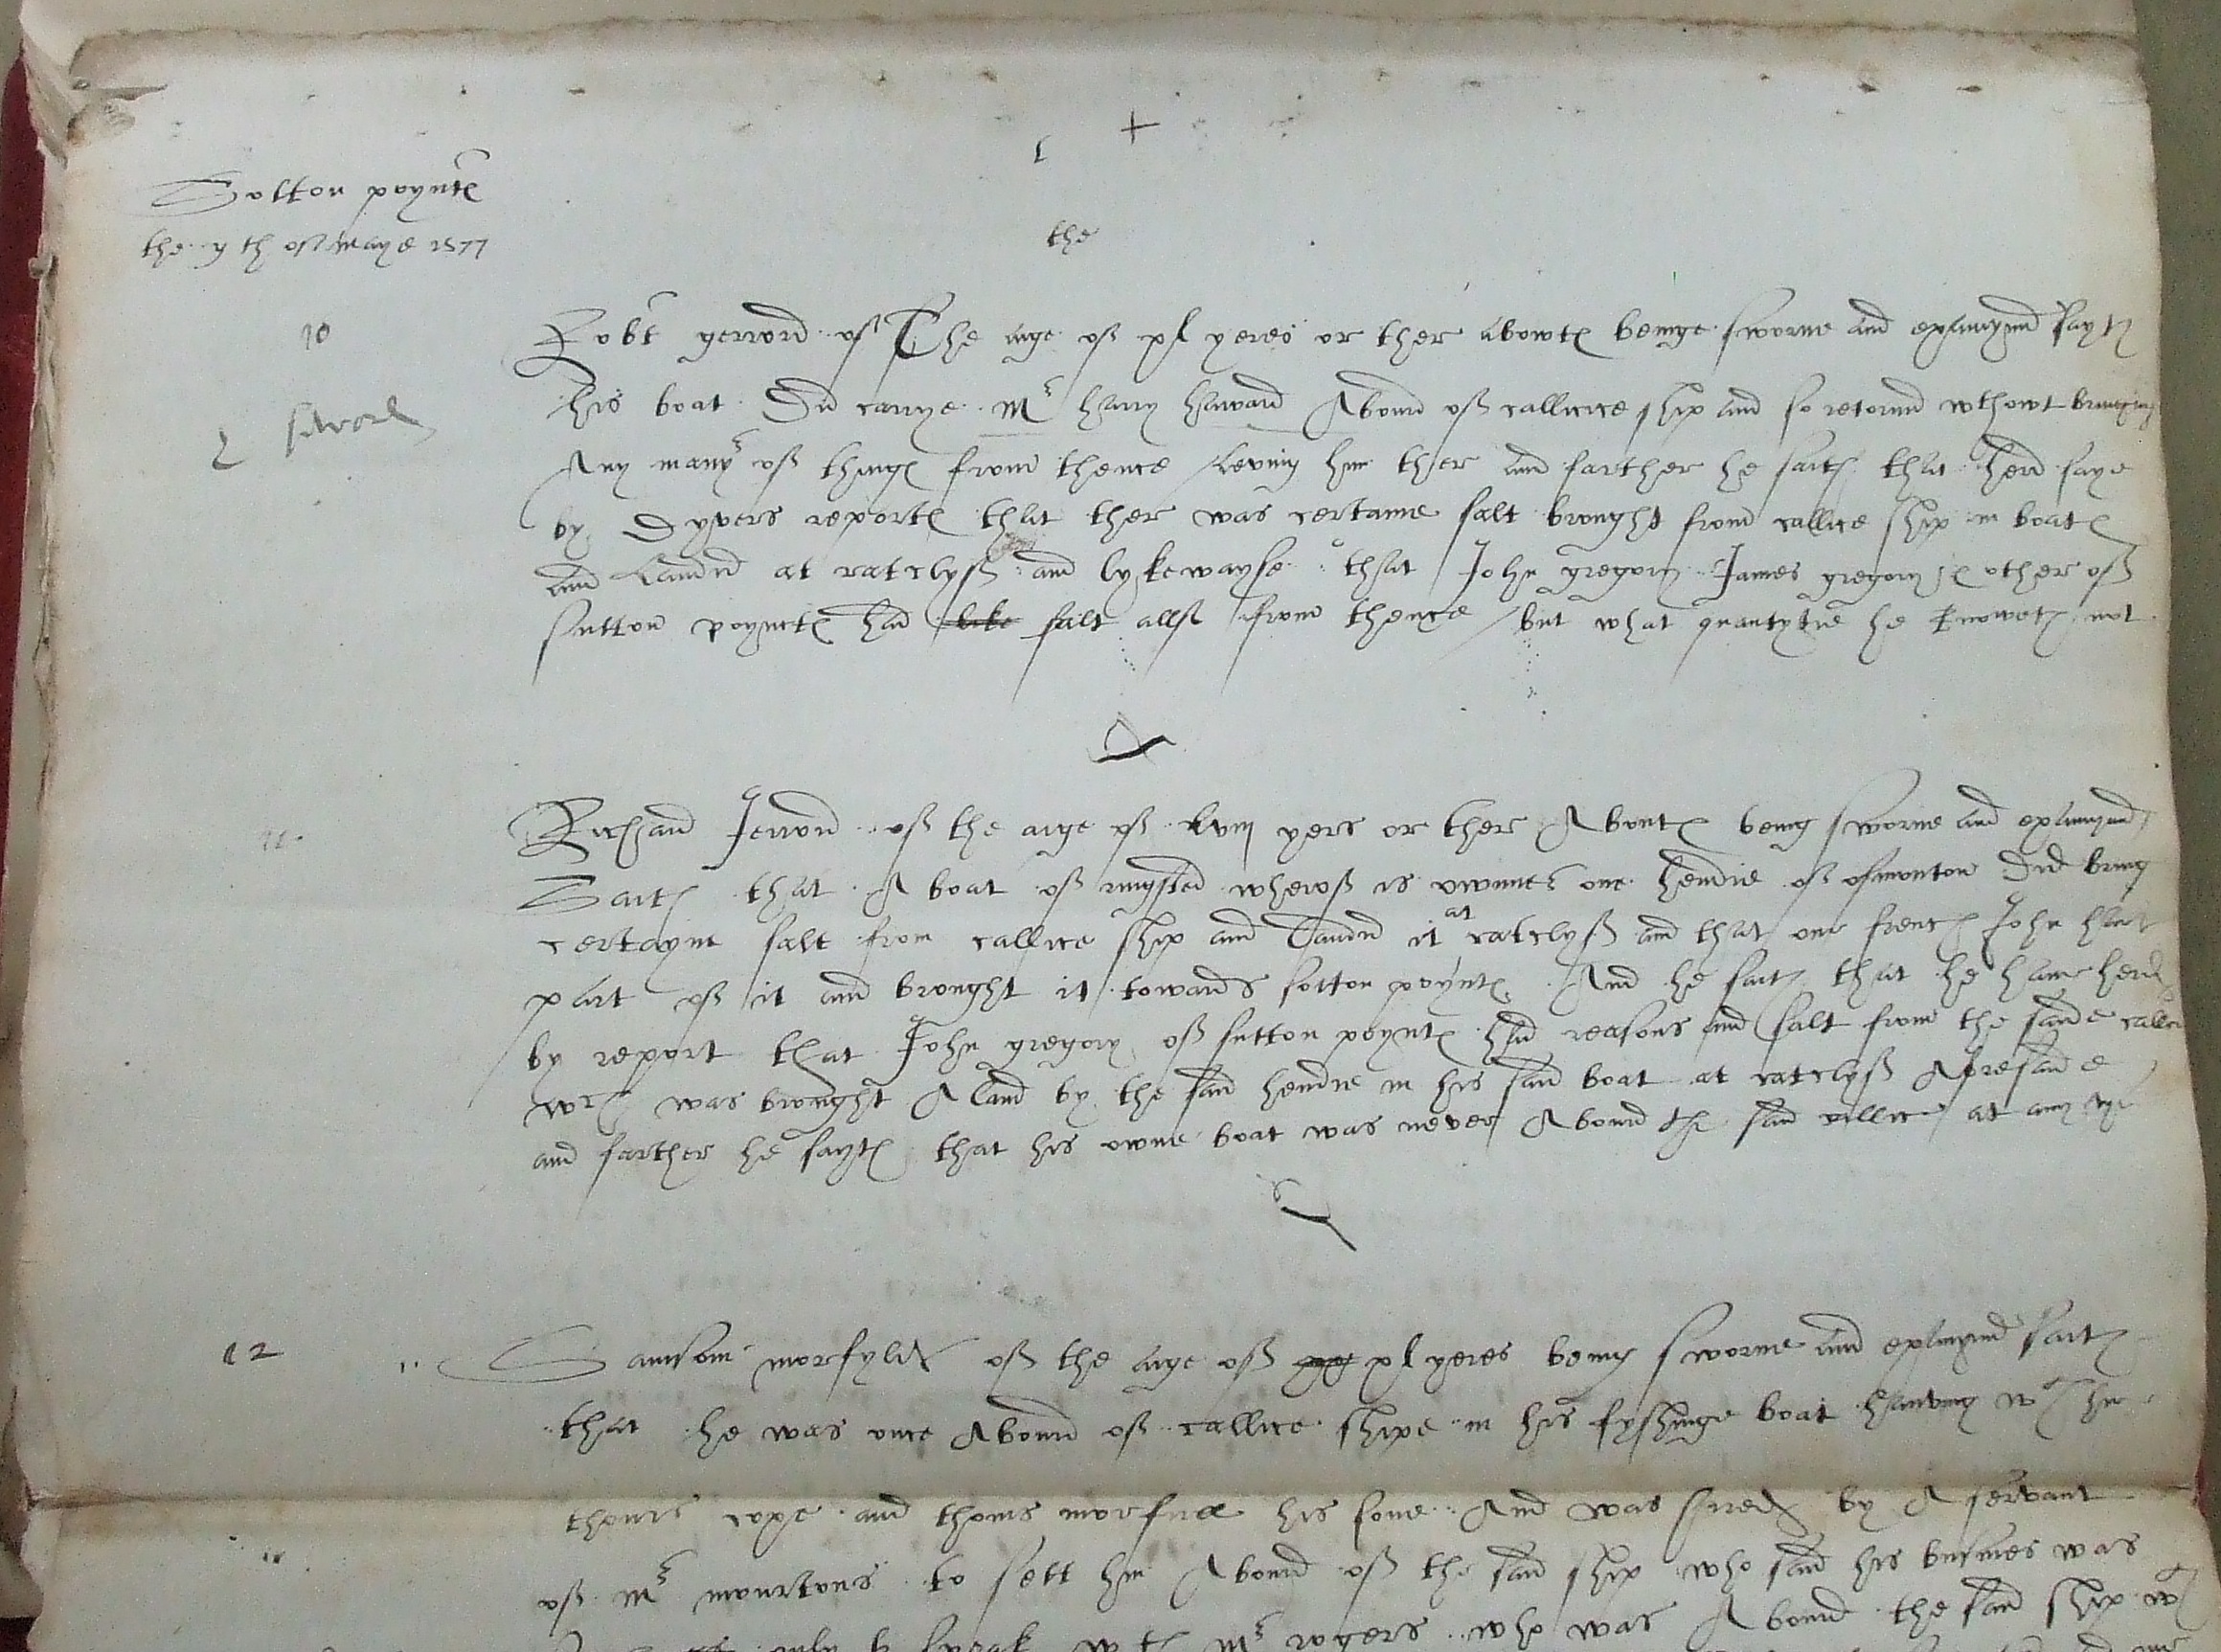 Solton poyntes
the 9 th off maye 1577
the
10
Robt gerrord off The aige off xl yeres or ther abowtes beinge sworne and examynd sayth
his boat Did carrye Mr harry haward Abourd off callice ship and so retornd wthowt bringing
Any manr off thinges from thence Leving him ther and farther he saith that herd saye
by Dyvers reportes that ther was certaine salt brought from callice ship in boates
and Landid at ratclyff and lykewayse that John gregory James gregory & other off
sutton poynctes had like salt allso from thence but what quantytie he knoweth not
11
Richard Jerrord off the aige off xviij yers or ther Aboutes being sworne and examynd
Saith that A boat off ringsted wheroff is owner one hendie off osmonton Did bring
certayne salt from callice ship and Landid it at ratclyff and that one french John had
part off it and brought it towards sotton poyntes And he saith that he have herd
by report that John gregory off sutton poyntes had reasons and salt from the saide callice
wch was brought A land by the said hendie in his said boat at ratclyff Aforesaide
and farther he sayth that his owne boat was never Abourd the said callice at any
12
Samsom morfyld off the aige off xl yeres being sworne and examynd saith
that he was once Abourd off callice shipe in his fyshinge boat having wth him
thomas cope and thoms morfill his sone And was hired by A servant
off Mr mourtons to sett him Abourd off the said ship who said his busines was
only to speak wth Mr rogers who was Abourd the said ship wth